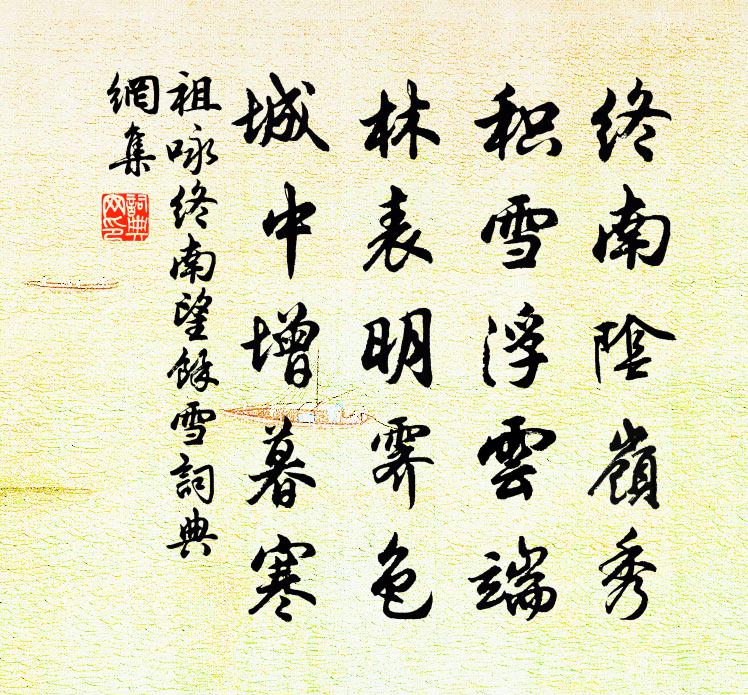 終南陰嶺秀
积雪浮雲端
林表明霽色
城中增暮寒
祖咏終南望餘雪詞典
網集
詞典
网印